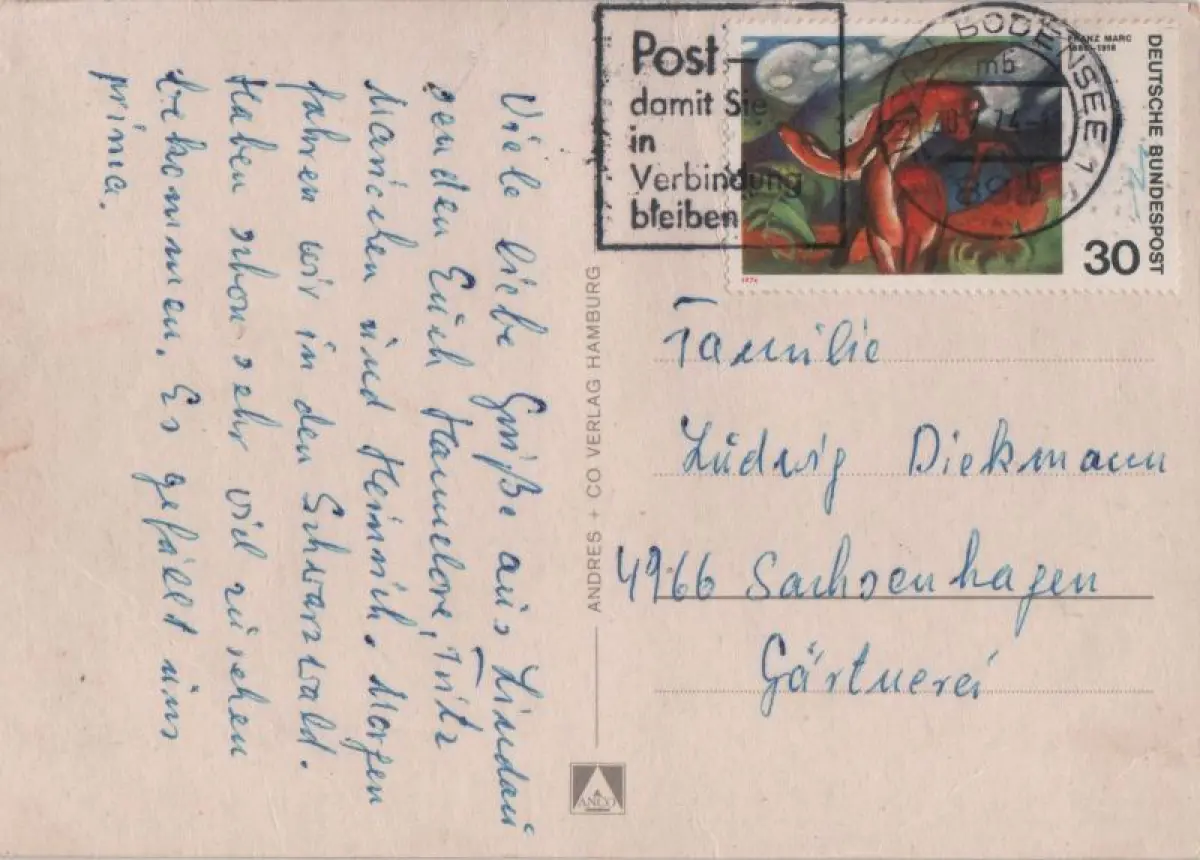 Post –
damit Sie
in
Verbindung
bleiben
BODENSEE 1
mb
FRANZ MARC
1880-1916
DEUTSCHE BUNDESPOST
30
1974
Viele liebe Grüße aus Lindau
senden Euch Hannelore, Fritz
Mariechen und Heinrich. Morgen
fahren wir in den Schwarzwald.
Haben schon sehr viel zusehen
bekommen. Es gefällt uns
prima.
ANDRES + CO VERLAG HAMBURG
ANCO
Familie
Ludwig Diekmann
4966 Sachsenhagen
Gärtnerei